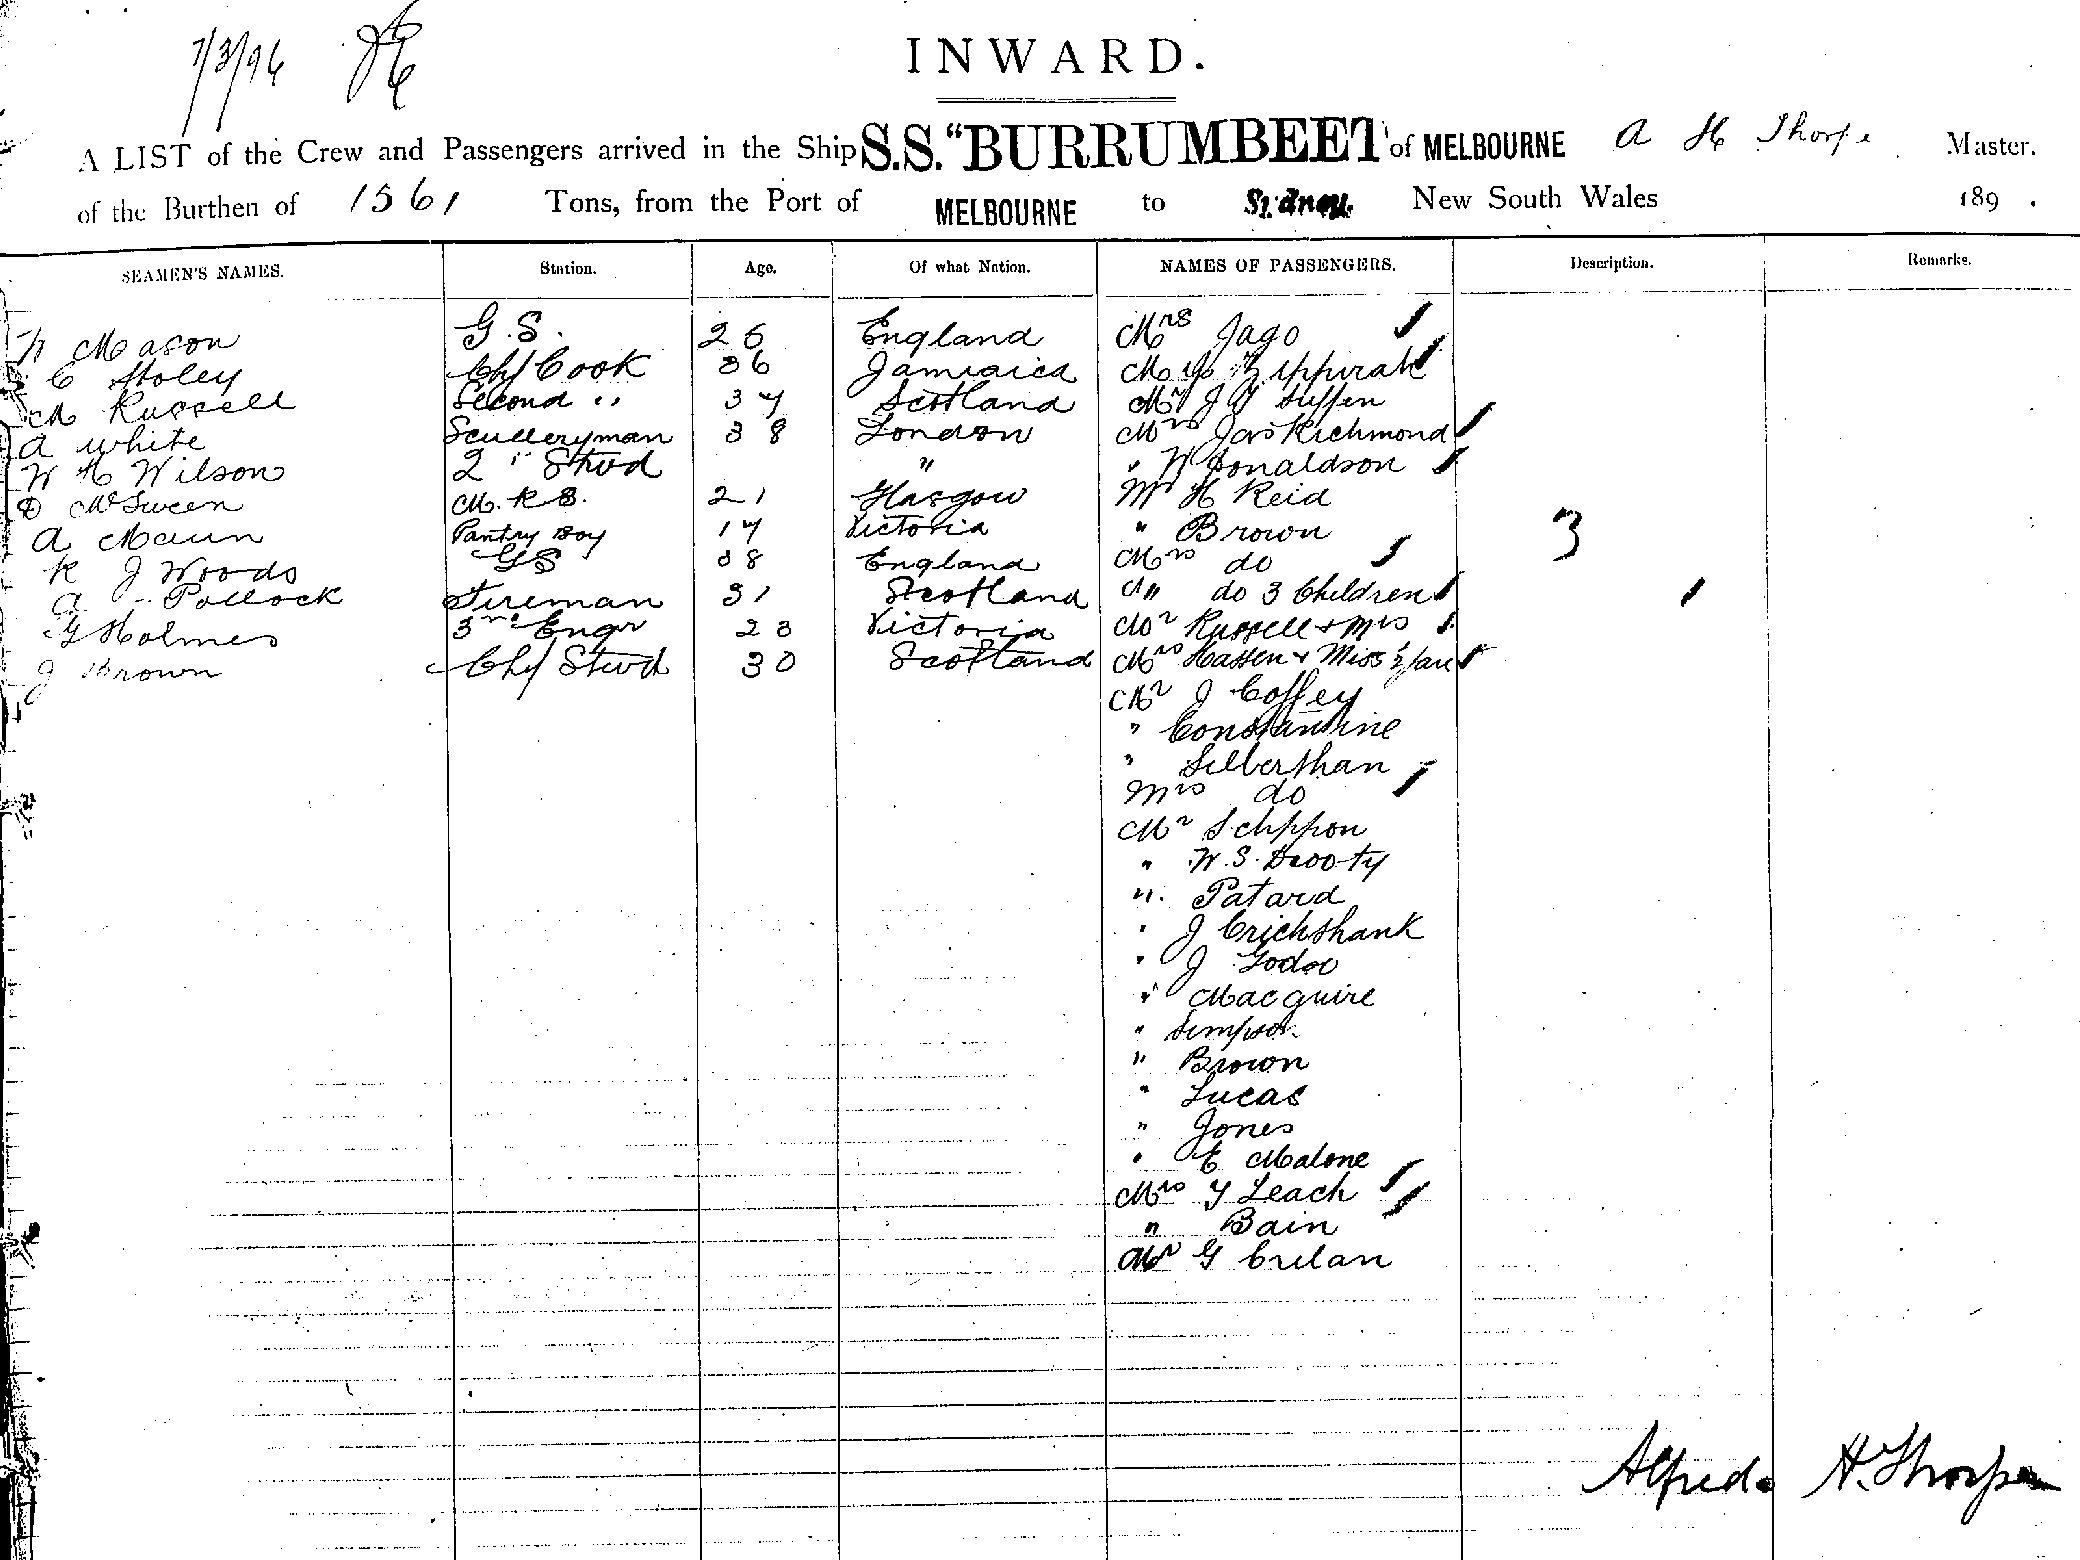 7/3/96
INWARD.
A LIST of the Crew and Passengers arrived in the Ship S.S. "BURRUMBEET" of MELBOURNE A H Thorpe Master.
of the Burthen of 1561 Tons, from the Port of MELBOURNE to Sydney. New South Wales 189 .
SEAMEN'S NAMES. Station. Age. Of what Nation. NAMES OF PASSENGERS. Description. Remarks.
Mason G.S. 26 England Mrs Jago
C Holey Chf Cook 36 Jamiaica
M Russell Second " 34 Scotland Mr J
A White Sculleryman 38 London Mrs Jas Richmond
W H Wilson 2 " Stwd " " W Donaldson
D McSween M.R.S. 21 Glasgow Mr H Reid
A Mann Pantry Boy 14 Victoria " Brown 3
R J Woods GS 38 England Mrs do
A Pollock Fireman 31 Scotland " do 3 Children
G Holmes 3rd Engr 23 Victoria Mr Russell & Mrs
J Brown Chf Stwd 30 Scotland Mrs Hassen & Miss
Mr J Coffey
" Constantine
" Silberthan
Mrs do
Mr
" W.S.
" Patard
" J Crickshank
" J
" Macguire
" Simpson
" Brown
" Lucas
" Jones
" E Malone
Mrs Leach
" Bain
Mr G Crelan
Alfred H. Thorpe